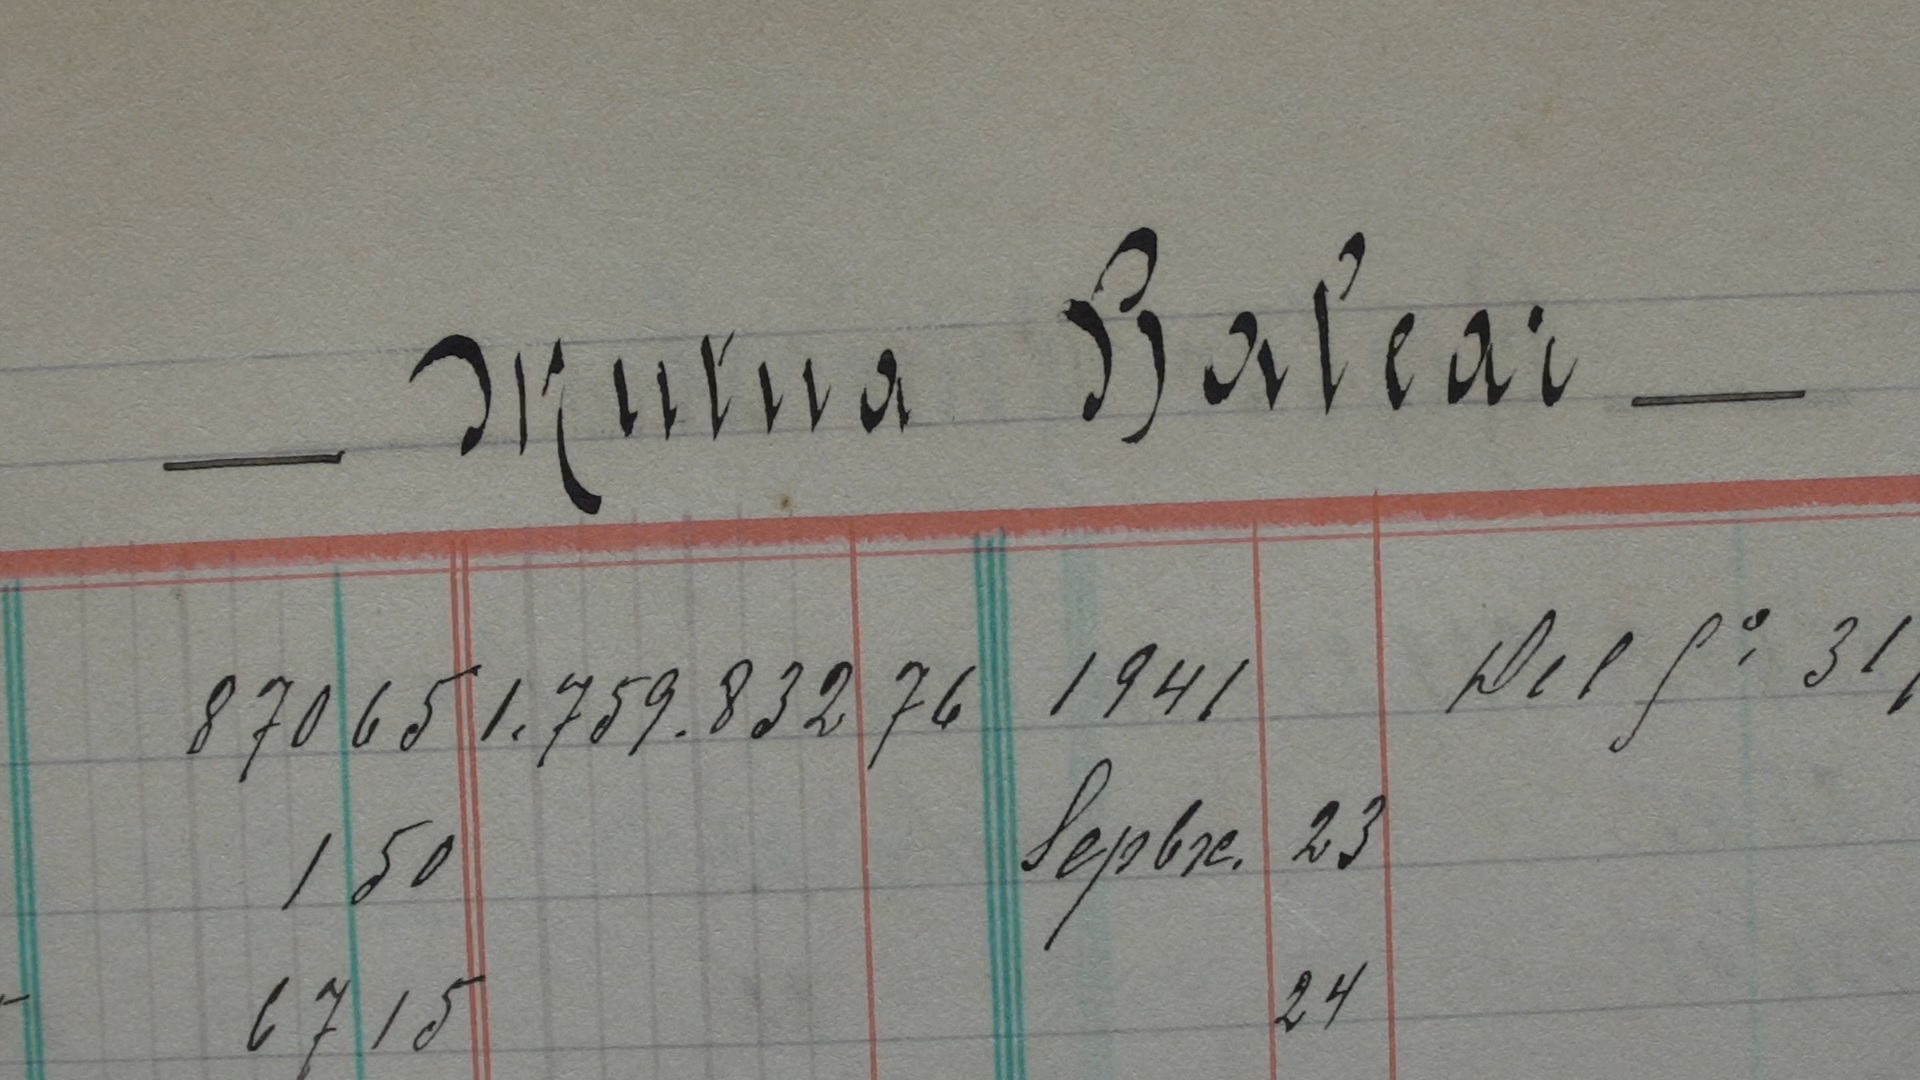 Mutua Balear
870 65 1.759.832 76 1941 Del fº 31
1 50 Sepbre. 23
67 15 24